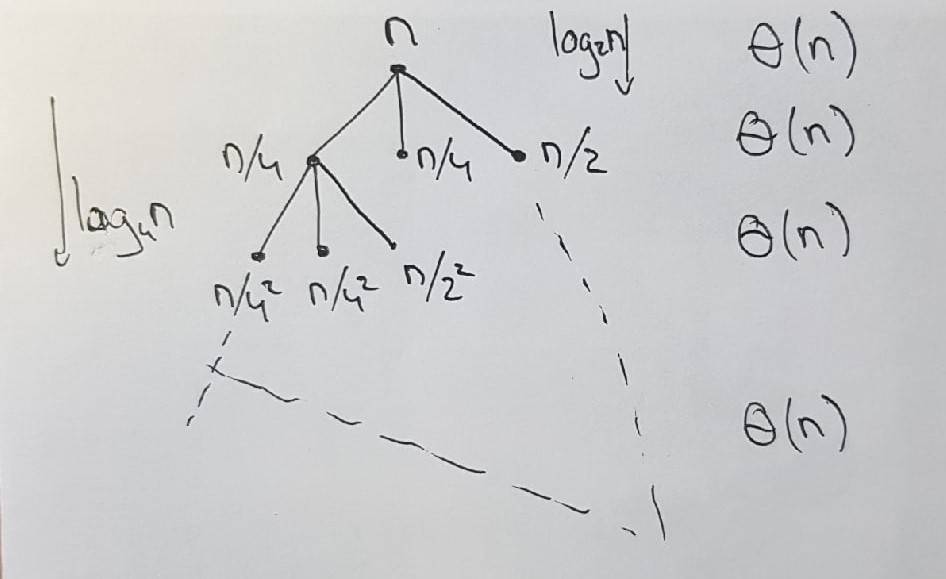 n log₂n θ(n)
n/4 n/4 n/2 θ(n)
log₄n n/4² n/4² n/2² θ(n)
θ(n)